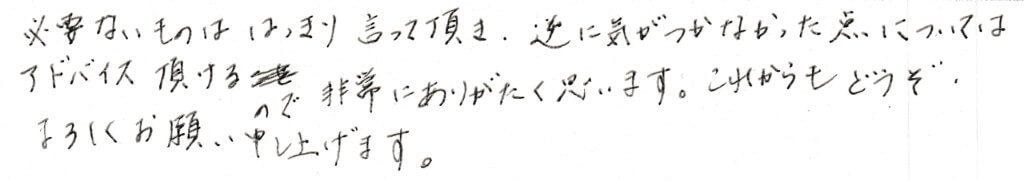 必要ないものははっきり言って頂き、逆に気がつかなかった点については
アドバイス頂けるので非常にありがたく思います。これからもどうぞ、
よろしくお願い申し上げます。